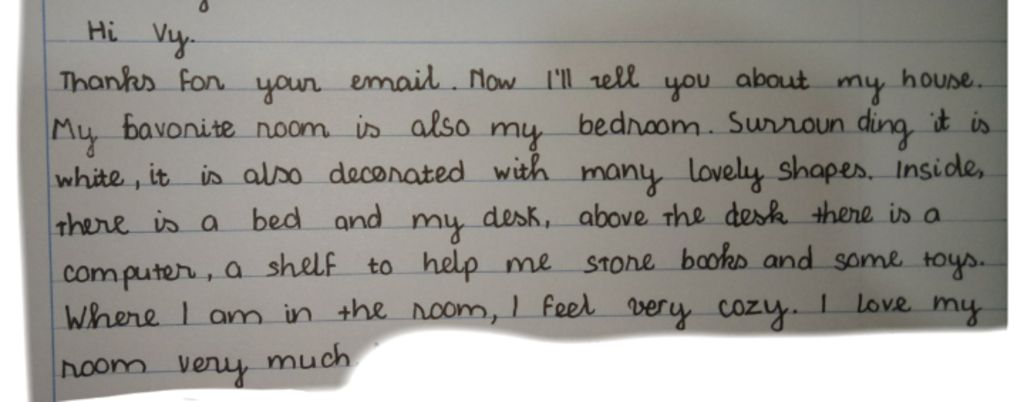 Hi Vy.
Thanks for your email. Now I'll tell you about my house.
My favorite room is also my bedroom. Surroun ding it is
white, it is also decorated with many lovely shapes. Inside,
there is a bed and my desk, above the desk there is a
computer, a shelf to help me store books and some toys.
Where I am in the room, I feel very cozy. I love my
room very much